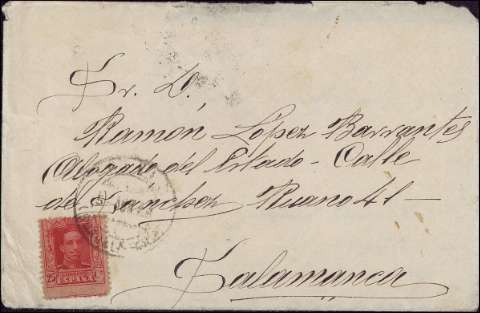 Sr. D.
Ramón López Barrantes
Abogado del Estado - Calle
de Sanchez Ruano 41 -
Salamanca
ESPAÑA